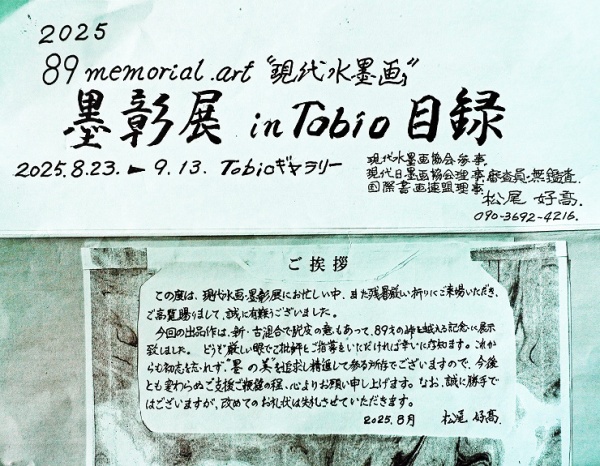 2025
89 memorial art "現代水墨画"
墨彰展 in Tobio 目録
2025.8.23. ► 9.13. Tobioギャラリー
現代水墨画協会参事
現代日墨画協会理事・審査員・無鑑査
国際書画連盟理事
松尾 好高
090-3692-4216.
ご挨拶
この度は、現代水画・墨彰展にお忙しい中、また残暑厳しい折りにご来場いただき、
ご高覧賜りまして、誠に有難うございました。
今回の出品作は、新・古混合で脱皮の意もあって、89才の峠を越える記念に展示
致しました。どうぞ厳しい眼でご批評とご指導をいただければ幸いに存知ます。これか
らも初志を忘れず"墨の美"を追求し精進して参る所存でございますので、今後
とも変わらぬご支援ご鞭韃の程、心よりお願い申し上げます。なお、誠に勝手で
はございますが、改めてのお礼状は失礼させていただきます。
2025.8月 松尾 好高.